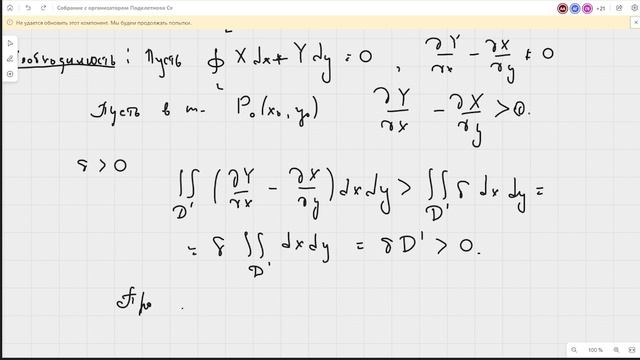 Собрание с организатором Подклетнова Св
+21
Не удается обновить этот компонент. Мы будем продолжать попытки.
Необходимость: Пусть ∮ X dx + Y dy = 0 , ∂Y/∂x − ∂X/∂y ≠ 0
Пусть в т. P₀(x₀, y₀) ∂Y/∂x − ∂X/∂y > 0.
δ > 0
∬_D' (∂Y/∂x − ∂X/∂y) dx dy > ∬_D' δ dx dy =
= δ ∬_D' dx dy = δD' > 0.
Про
100 %